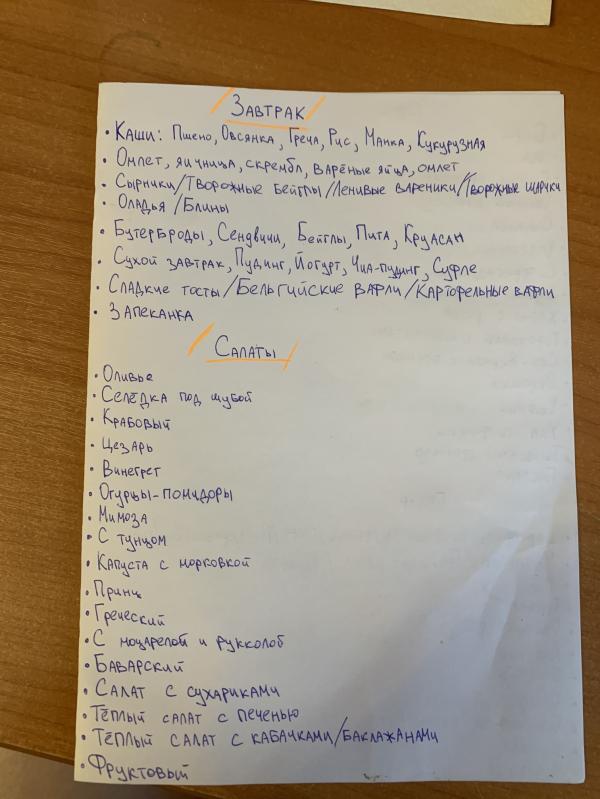 Завтрак
• Каши: Пшено, Овсянка, Греча, Рис, Манка, Кукурузная
• Омлет, яичница, скрембл, варёные яйца, омлет
• Сырники/Творожные бейглы/Ленивые вареники/Творожные шарики
• Оладья/Блины
• Бутерброды, Сендвичи, Бейглы, Пита, Круасан
• Сухой завтрак, Пудинг, Йогурт, Чиа-пудинг, Суфле
• Сладкие тосты/Бельгийские вафли/Картофельные вафли
• Запеканка
Салаты
• Оливье
• Селёдка под шубой
• Крабовый
• Цезарь
• Винегрет
• Огурцы-помидоры
• Мимоза
• С тунцом
• Капуста с морковкой
• Принц
• Греческий
• С моцарелой и рукколой
• Баварский
• Салат с сухариками
• Тёплый салат с печенью
• Тёплый салат с кабачками/баклажанами
• Фруктовый